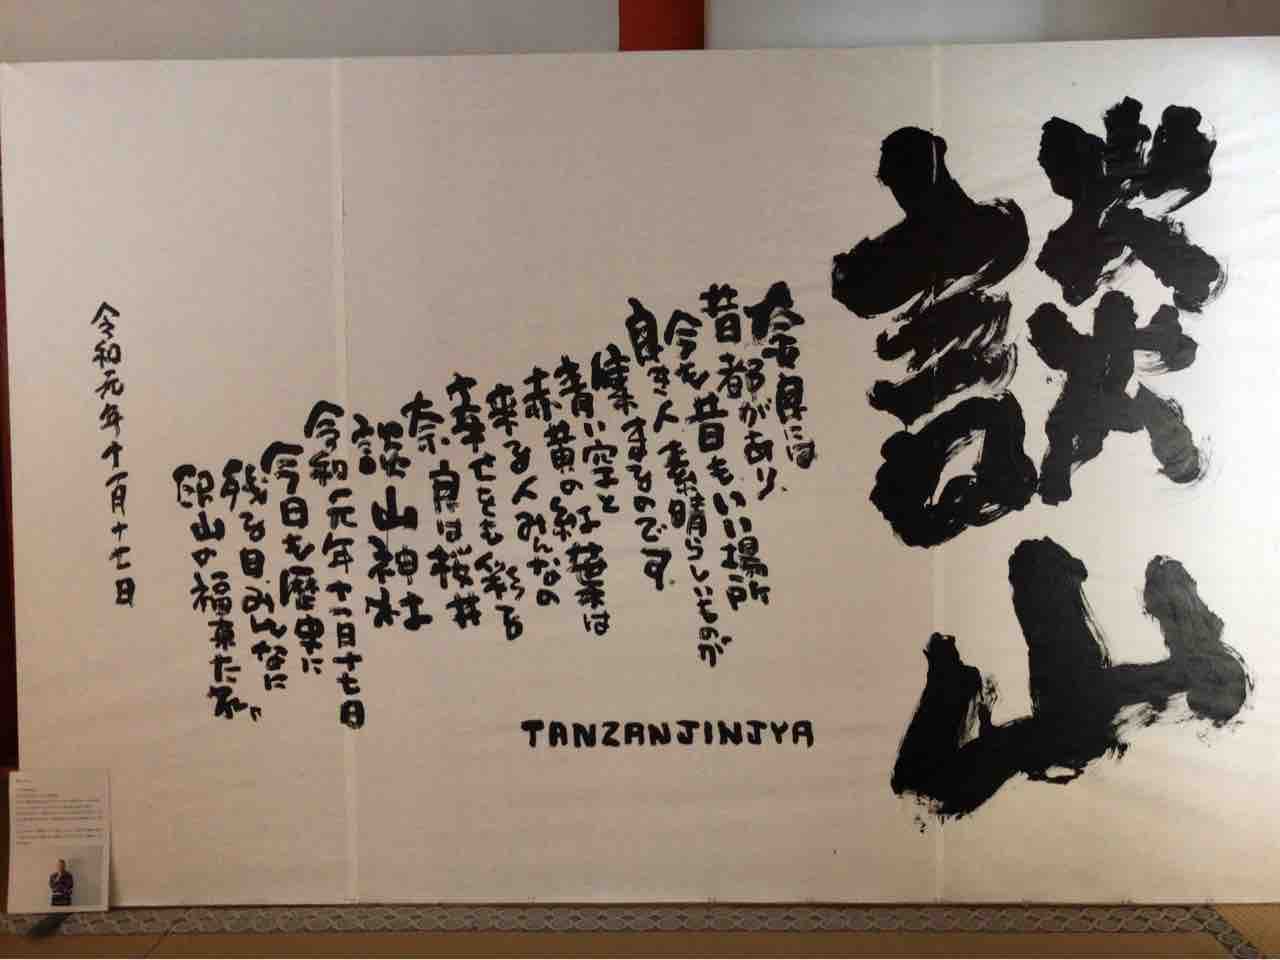 談山
奈良には
昔都があり
今も昔もいい場所
良き人素晴らしいものが
集まるのです
青い空と
赤黄の紅葉は
来る人みんなの
幸せをも彩る
奈良は桜井
談山神社
令和元年十一月十七日
今日も歴史に
残る日みんなに
山の福来たる
令和元年十一月十七日
TANZANJINJYA